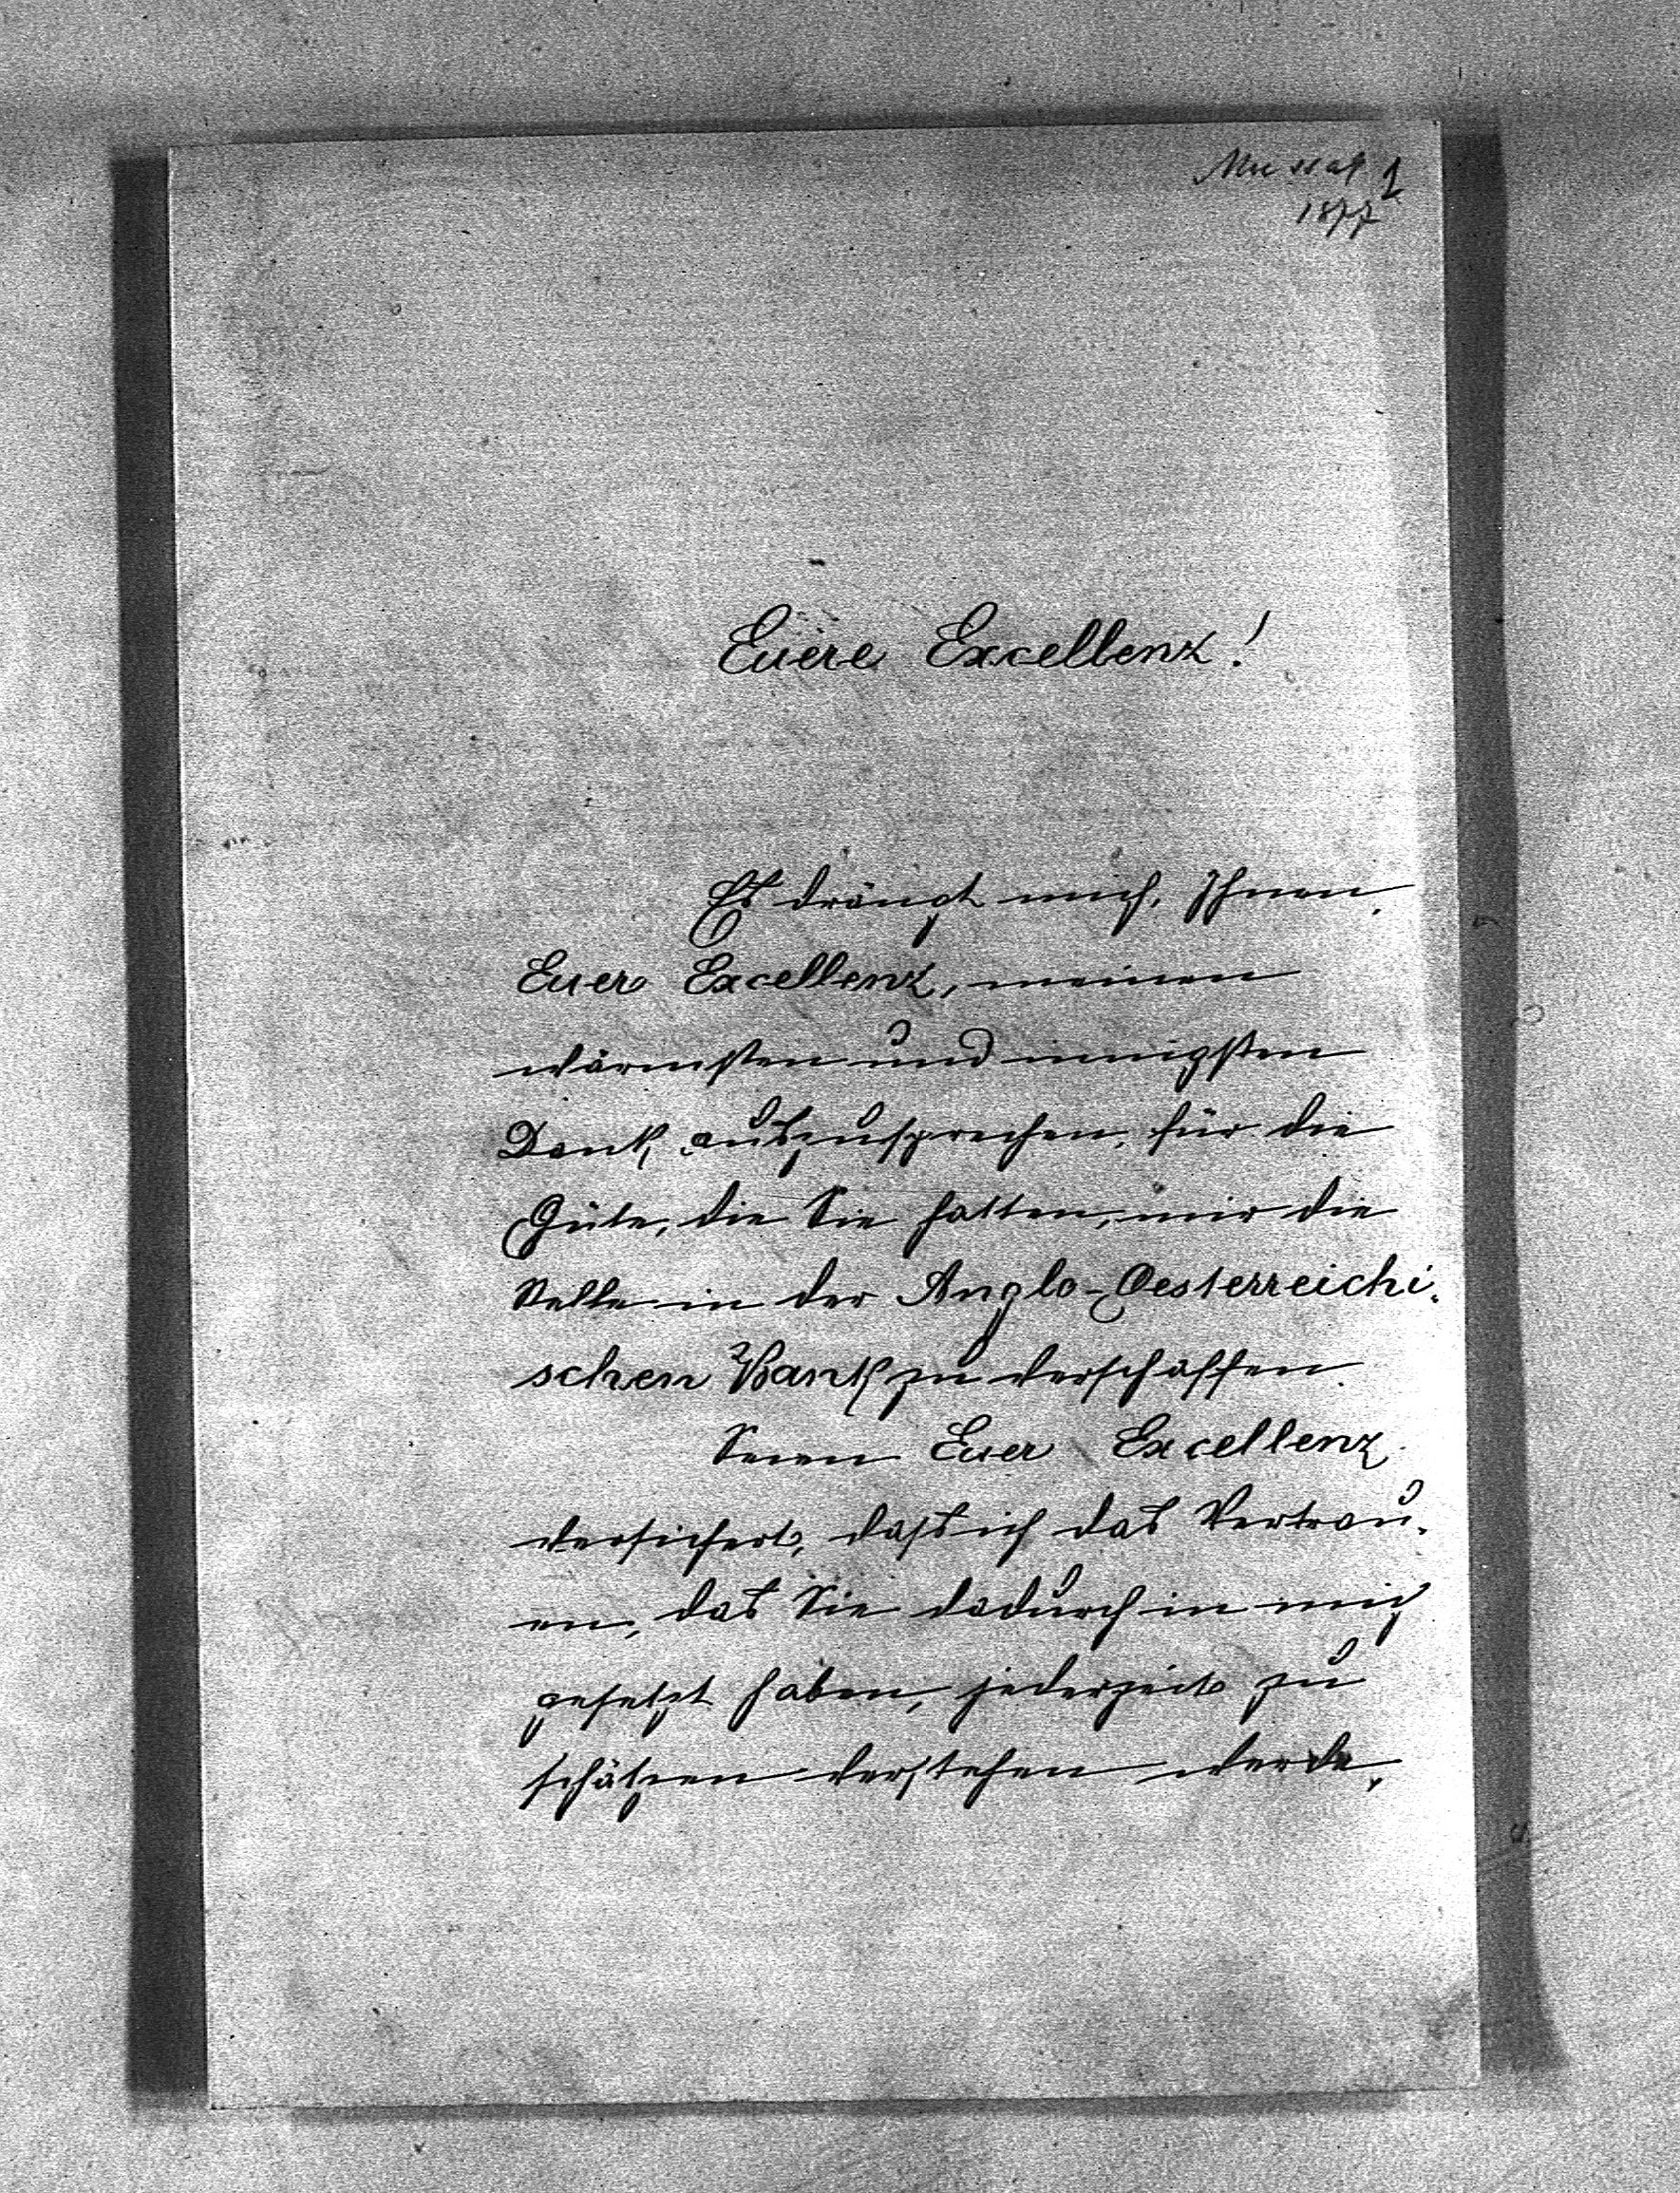 Mussaf 1
1877
Euere Excellenz!
Es drängt mich, Ihnen,
Euer Excellenz, meinen
wärmsten und innigsten
Dank auszusprechen, für die
Güte, die Sie hatten, mir die
Stelle in der Anglo-Oesterreichi-
schen Bank zu verschaffen.
Seien Euer Excellenz
versichert, dass ich das Vertrau-
en, das Sie dadurch in mich
gesetzt haben, jederzeit zu
schätzen verstehen werde,